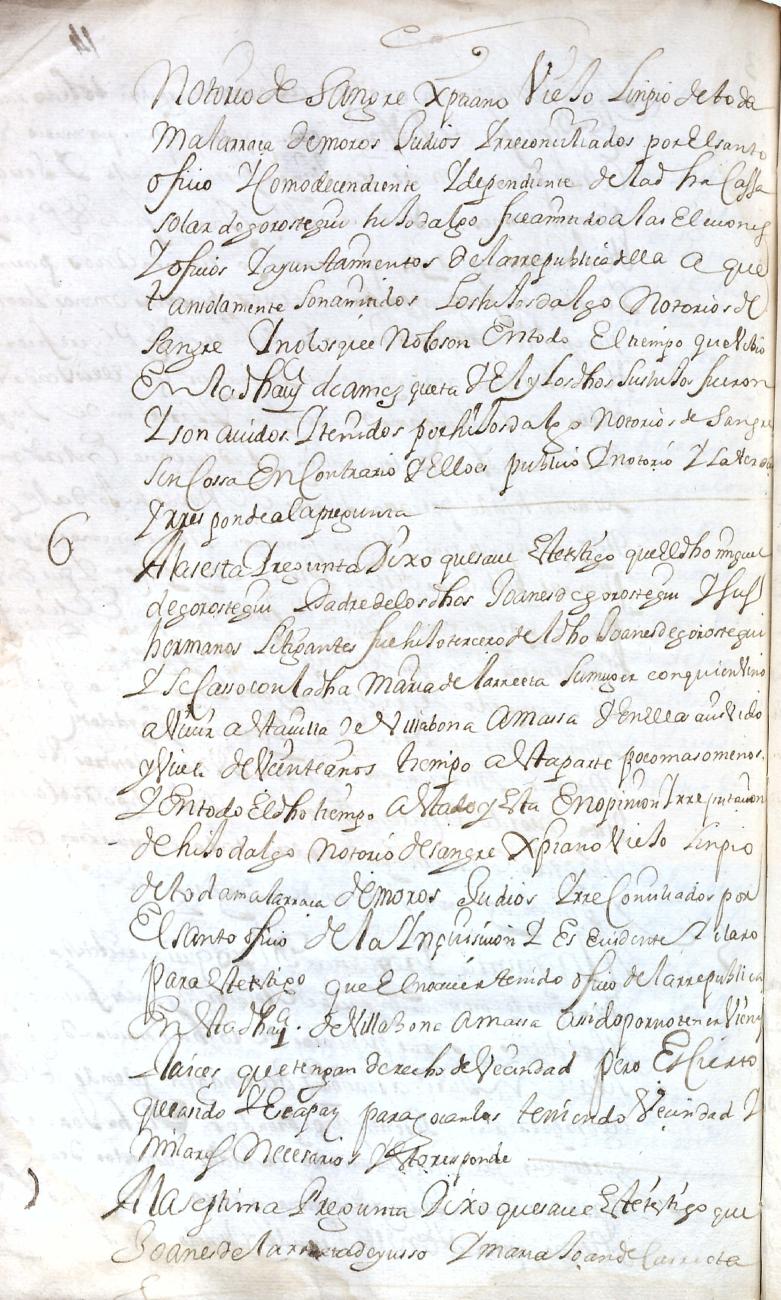 Notorio de Sangre xpiano Viejo Linpio de toda
Mala rraça de moros Judios Y rreconciliados por El santo
oficio Y Como decendiente Y dependiente de la dha Cassa
solar de gorostegui hijodalgo fue amitido a las Eleciones
Y oficios Y ayuntamientos de la rrepublica della a que
tansolamente son amitidos Los hijosdalgo Notorios de
Sangre Y no los que No lo son En todo El tiempo que Vibio
En la dha Vª de amezqueta Y El y Los dhos sus hijos fueron
Y son auidos Y tenidos por hijosdalgo Notorios de Sangre
sin Cossa En Contrario Y Ello es publico Y notorio Y La Verdad
Y rresponde a la pregunta
6
A la sesta Pregunta Dixo que saue Este testigo que El dho miguel
de gorostegui Padre de los dhos Joanes de gorostegui Y sus
hermanos Litigantes fue hijo tercero del dho Joanes de gorostegui
Y se Casso con la dha Maria de larreta su muger con quien Vino
a Viuir a esta Villa de Villabona Amassa Y En Ella a uiuido
y Viue de Veinte años tiempo a esta parte poco mas o menos
Y En todo El dho tiempo a estado y Esta En opinion Y rreputacion
de hijodalgo Notorio de sangre xpiano Viejo Linpio
de toda mala rraça de moros Judios Y rreConciliados por
El santo oficio de la Inquisicion Y Es Euidente Y claro
para Este testigo que El no auer tenido oficio de la rrepublica
En esta dha Vª de Villabona Amassa a sido por no tener Vienes
Raices que tengan derecho de Vecindad pero Es Cierto
que a sido Y Es capaz para goçarlos teniendo Vecindad Y
millares Necesarios Y Esto responde
A la septima Pregunta Dixo que saue Este testigo que
Joanes de larreta de yusso Y maria Joan de Larreta